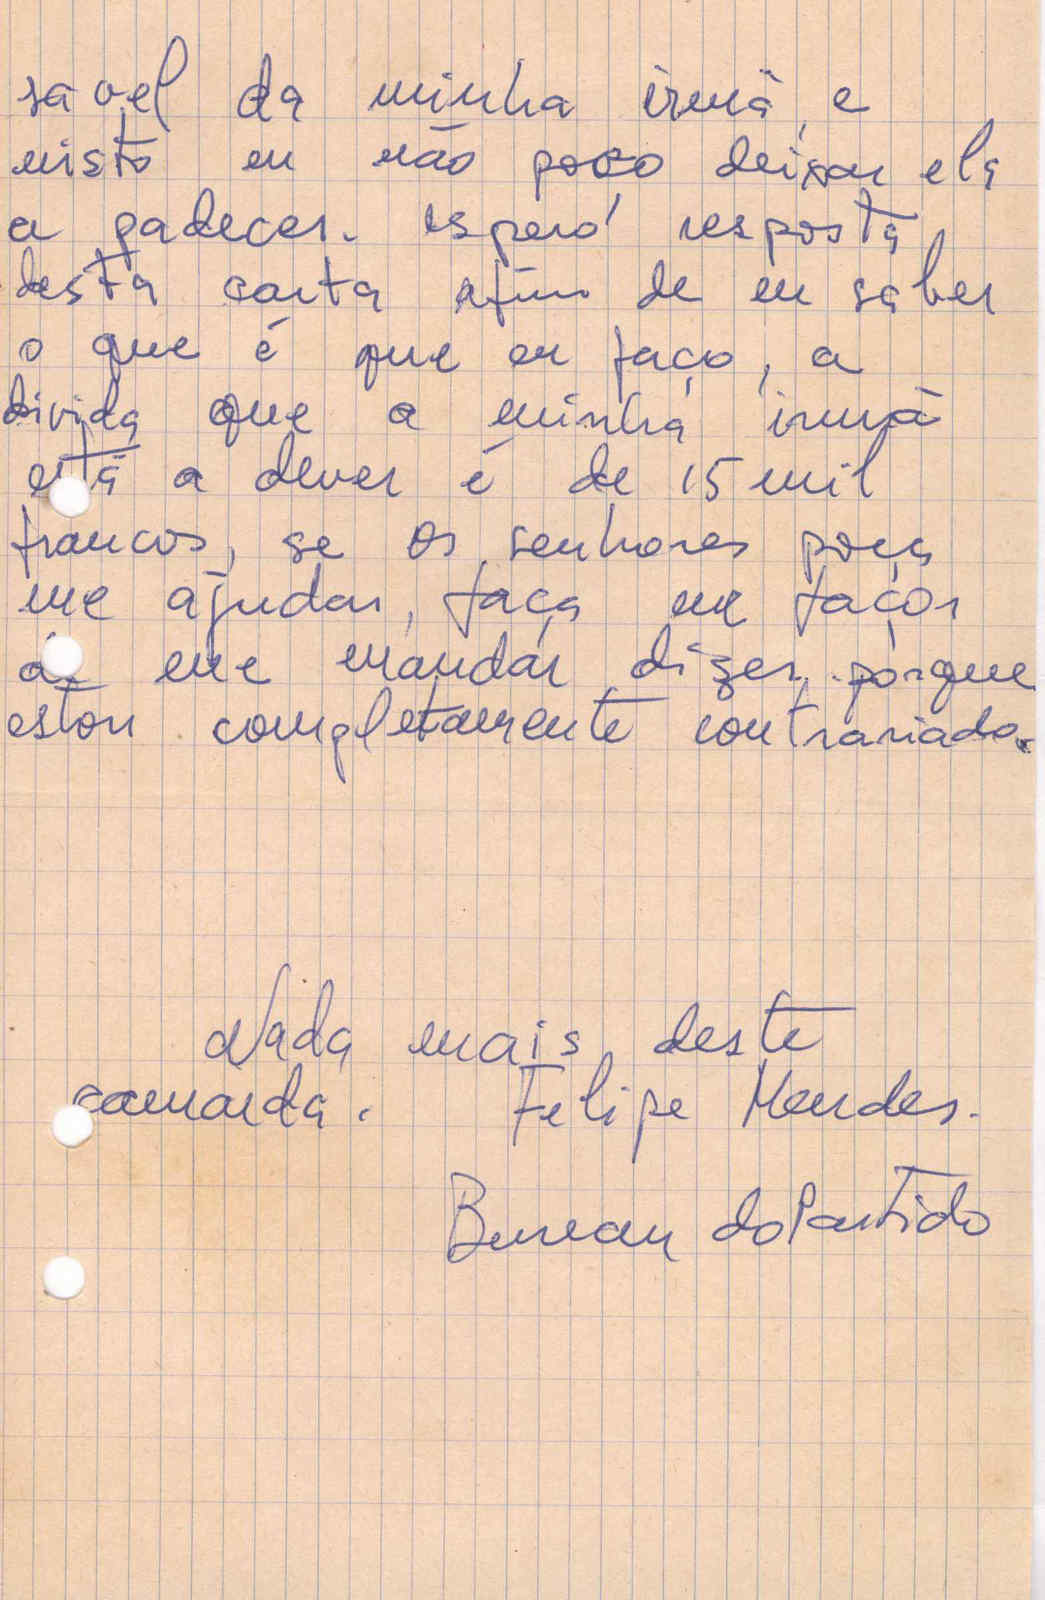 savel da minha irmã, e
nisto eu não poço deixar ela
a padecer. espero resposta
desta carta afim de eu saber
o que é que eu faço, a
divida que a minha irmã
está a dever é de 15 mil
francos, se os senhores poça
me ajudar, faça me façor
de me mandar dizer, porque
estou completamente contrariado.
Nada mais deste
camarda. Felipe Mendes.
Bureau do Partido